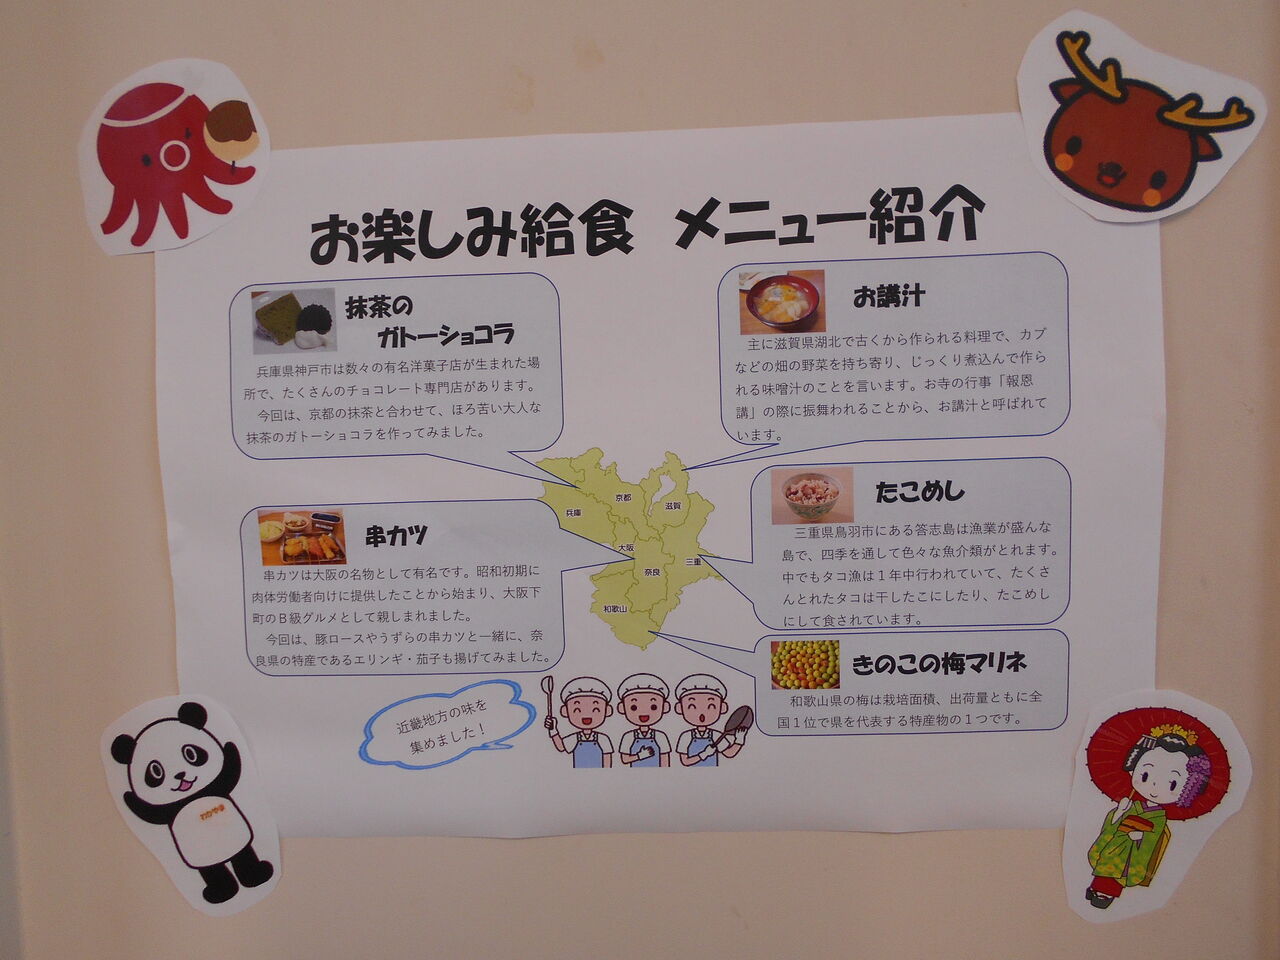 お楽しみ給食 メニュー紹介
抹茶の
ガトーショコラ
兵庫県神戸市は数々の有名洋菓子店が生まれた場
所で、たくさんのチョコレート専門店があります。
今回は、京都の抹茶と合わせて、ほろ苦い大人な
抹茶のガトーショコラを作ってみました。
お講汁
主に滋賀県湖北で古くから作られる料理で、カブ
などの畑の野菜を持ち寄り、じっくり煮込んで作ら
れる味噌汁のことを言います。お寺の行事「報恩
講」の際に振舞われることから、お講汁と呼ばれて
います。
串カツ
串カツは大阪の名物として有名です。昭和初期に
肉体労働者向けに提供したことから始まり、大阪下
町のB級グルメとして親しまれました。
今回は、豚ロースやうずらの串カツと一緒に、奈
良県の特産であるエリンギ・茄子も揚げてみました。
京都
兵庫
滋賀
大阪
三重
奈良
和歌山
たこめし
三重県鳥羽市にある答志島は漁業が盛んな
島で、四季を通して色々な魚介類がとれます。
中でもタコ漁は1年中行われていて、たくさ
んとれたタコは干したこにしたり、たこめし
にして食されています。
きのこの梅マリネ
和歌山県の梅は栽培面積、出荷量ともに全
国1位で県を代表する特産物の1つです。
近畿地方の味を
集めました!
わかやま